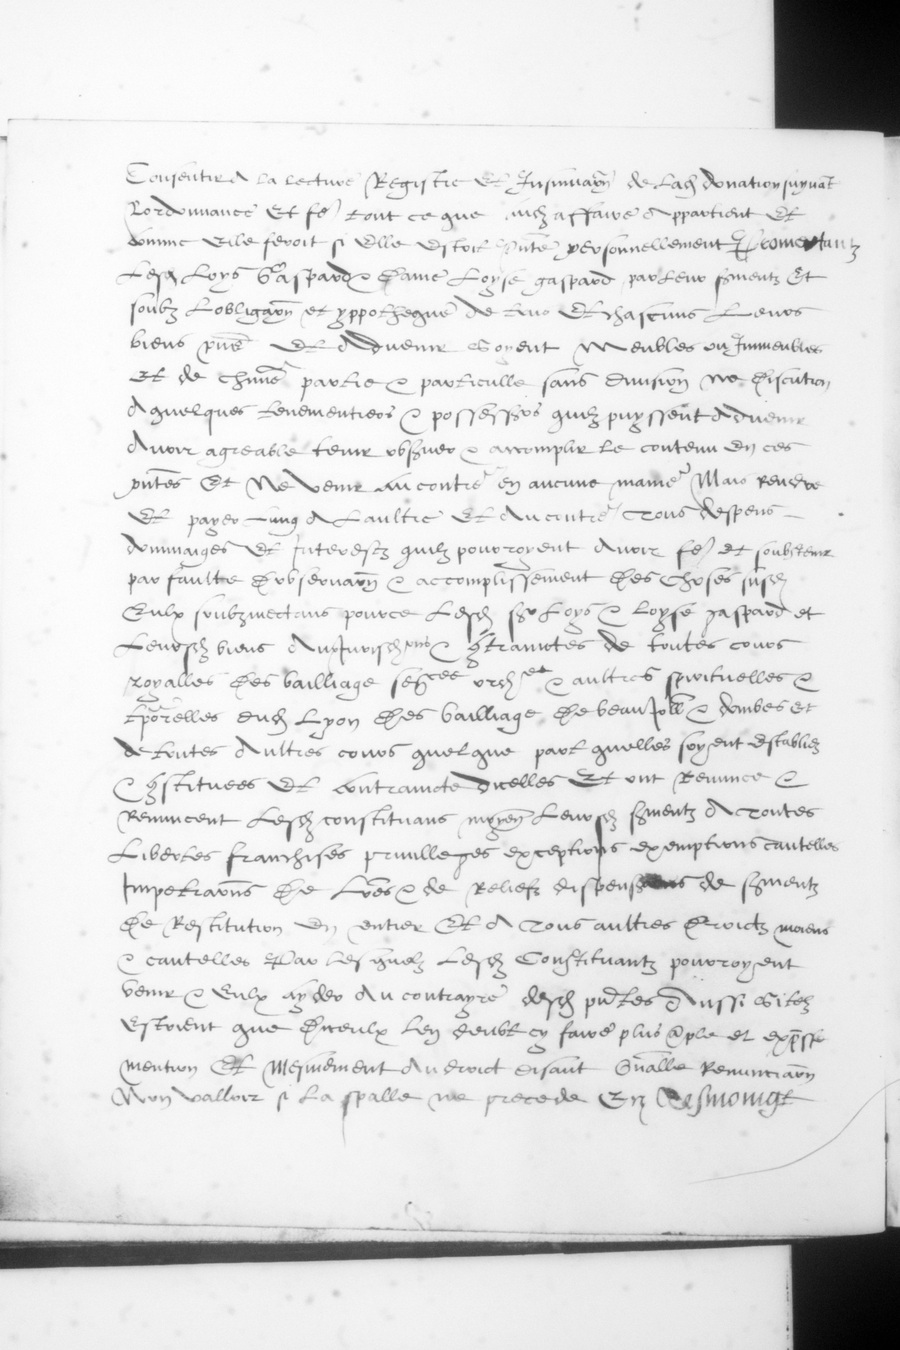 Consentir a la lecture Registre et Insinuaõn de lad donation suyvãt
lordonnance Et fe tout ce que aud affaire appartient Et
comme elle feroit si elle estoit pnte personnellement Promectantz
Lesd Loys Gaspard & dame Loyse gaspard par leur sermentz Et
soubz lobligaõn et yppotheque de tous Et chascuns Leurs
biens pns Et Advenir Soyent Meubles ou Immeubles
Et de chune partie & particulle sans division ne discution
A quelques tenementiers & possessrs quilz puyssent Advenir
Avoir agreable tenir observer & accomplir le contenu En ces
pntes Et Ne venir au contre en aucune manie Mais Rendre
Et payer Lung A Laultre Et Au contre Tous despens
dommaiges Et Interestz quilz pourroyent Avoir fe et soubstenir
par faulte dobservaõn & accomplissement des choses susd
Eulx soubzmectans pource Lesd sr Loys & Loyse gaspard et
Leursd biens Aux Jurisdions & contrainctes de toutes cours
royalles des bailliage senee ord & aultres spirituelles &
tporelles dud Lyon des bailliage de beaujoll & dombes et
de toutes Aultres cours quelque part quelles soyent establies
& constituees Et contraincte dicelles Et ont Renunce &
Renuncent Lesd constituans moyen Leursd sermentz A Toutes
Libertes franchises privilleges exceptions exemptions cautelles
Impetraõns de Lres & de Reliefz dispenses de sermentz
de Restitution En entier Et A Tous aultres droictz moiens
& cautelles Par lesquelz Lesd Constituantz pourroyent
venir & Eulx ayder Au contrayre desd pntes Aussi Silz
Estoient que diceulx len deubt cy faire plus ãple et expsse
mention Et Mesmement Au droict disant Gnalle Renunciaõn
Non valloir si La spalle ne precede En Tesmoinge